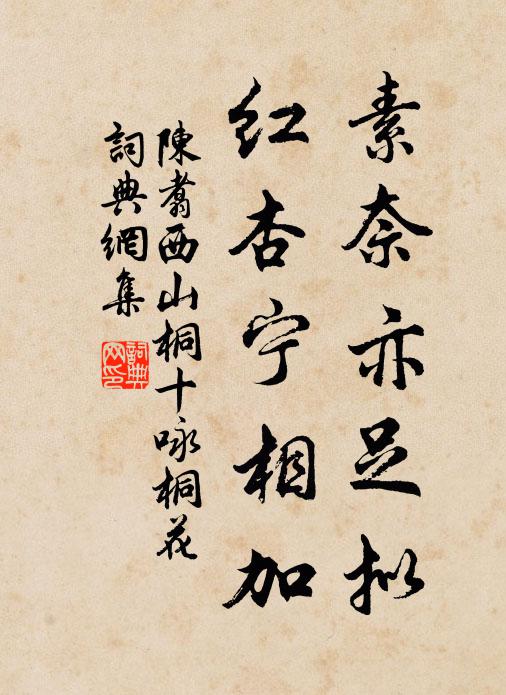 素奈亦足拟
红杏宁相加
陳翥西山桐十咏桐花
詞典網集
詞典網印